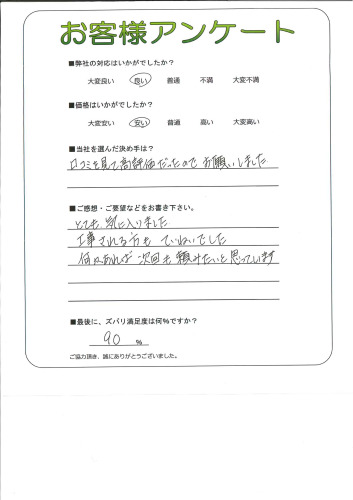 お客様アンケート
■弊社の対応はいかがでしたか?
大変良い 良い 普通 不満 大変不満
■価格はいかがでしたか?
大変安い 安い 普通 高い 大変高い
■当社を選んだ決め手は?
口コミを見て高評価だったのでお願いしました
■ご感想・ご要望などをお書き下さい。
とても気に入りました
工事される方もていねいでした
何かあれば次回も頼みたいと思っています
■最後に、ズバリ満足度は何%ですか?
90 %
ご協力頂き、誠にありがとうございました。